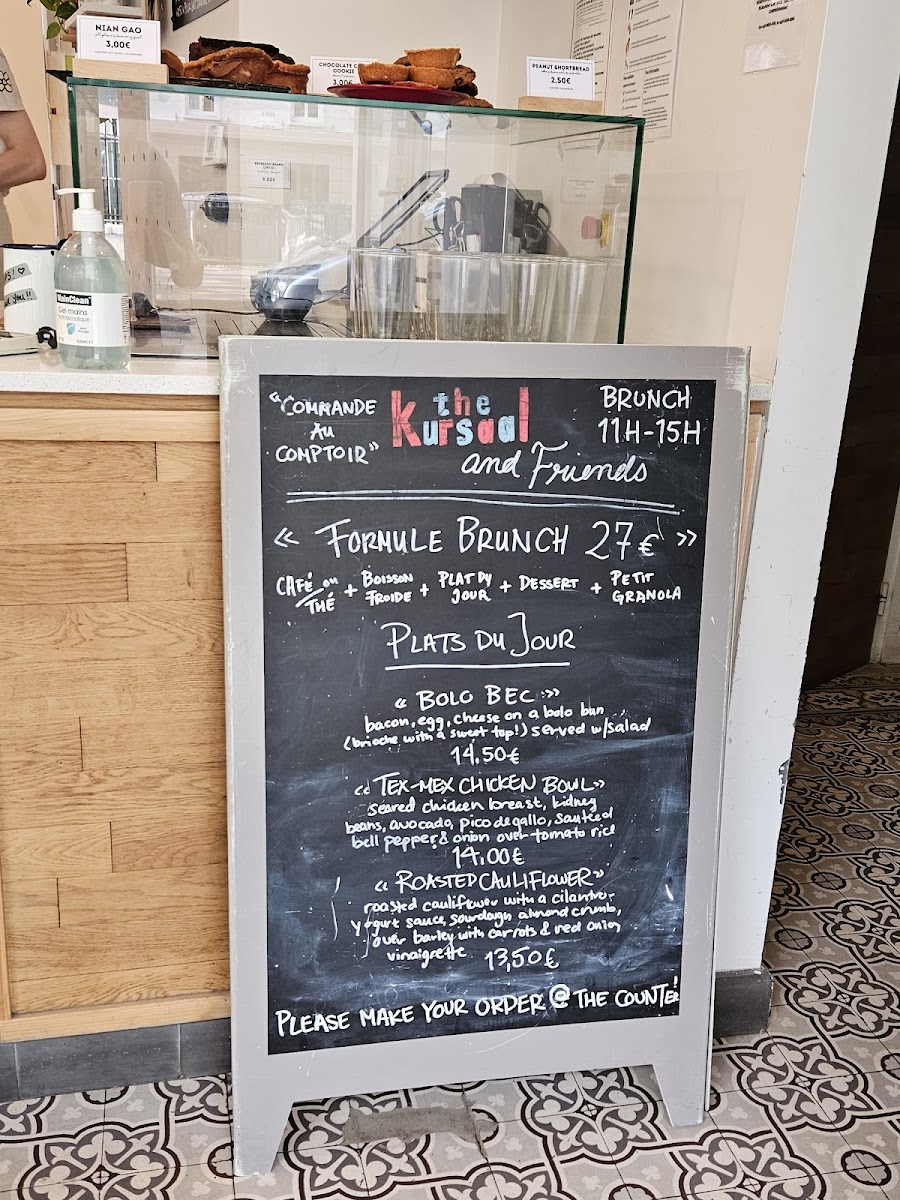 NIAN GAO
3,00€
CHOCOLATE C
COOKIE
3,00€
PEANUT SHORTBREAD
2,50€
9,00€
MainClean
Gel mains
"COMMANDE
AU
COMPTOIR"
the
Kursaal
and Friends
BRUNCH
11H-15H
« FORMULE BRUNCH 27€ »
CAFÉ OU THÉ + BOISSON FROIDE + PLAT DU JOUR + DESSERT + PETIT GRANOLA
PLATS DU JOUR
« BOLO BEC »
bacon, egg, cheese on a bolo bun
(brioche with a sweet top!) served w/salad
14.50€
« TEX-MEX CHICKEN BOWL »
seared chicken breast, kidney
beans, avocado, pico de gallo, sauteed
bell pepper & onion over tomato rice
14.00€
« ROASTED CAULIFLOWER »
roasted cauliflower with a cilantro-
yogurt sauce, sourdough almond crumb,
over barley with carrots & red onion
vinaigrette 13,50€
PLEASE MAKE YOUR ORDER @ THE COUNTER!